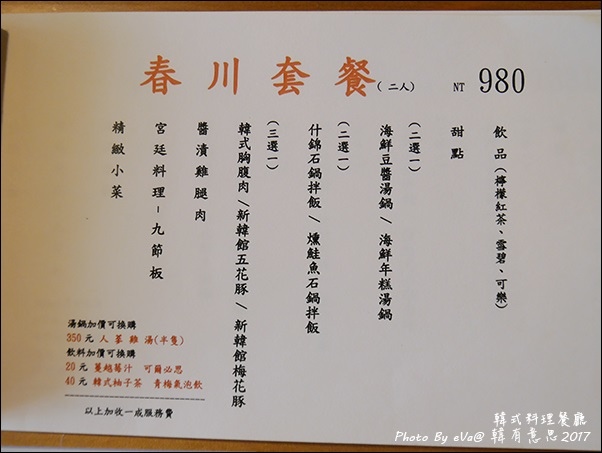 春川套餐(二人) NT 980
精緻小菜
宮廷料理-九節板
醬漬雞腿肉
(三選一)
韓式胸腹肉/新韓館五花豚/新韓館梅花豚
(二選一)
什錦石鍋拌飯/燻鮭魚石鍋拌飯
(二選一)
海鮮豆醬湯鍋/海鮮年糕湯鍋
甜點
飲品(檸檬紅茶、雪碧、可樂)
湯鍋加價可換購
350元 人蔘雞湯(半隻)
飲料加價可換購
20元 蔓越莓汁 可爾必思
40元 韓式柚子茶 青梅氣泡飲
以上加收一成服務費
韓式料理餐廳
Photo By eVa@ 韓有意思 2017